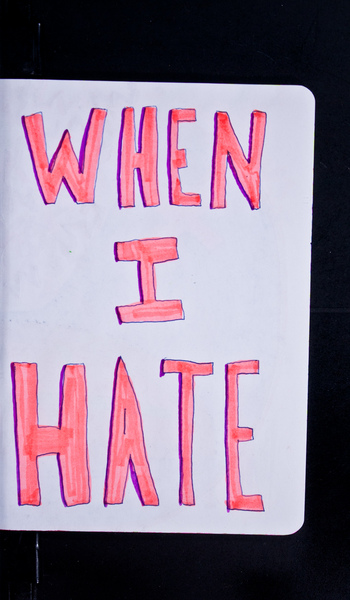 WHEN
I
HATE